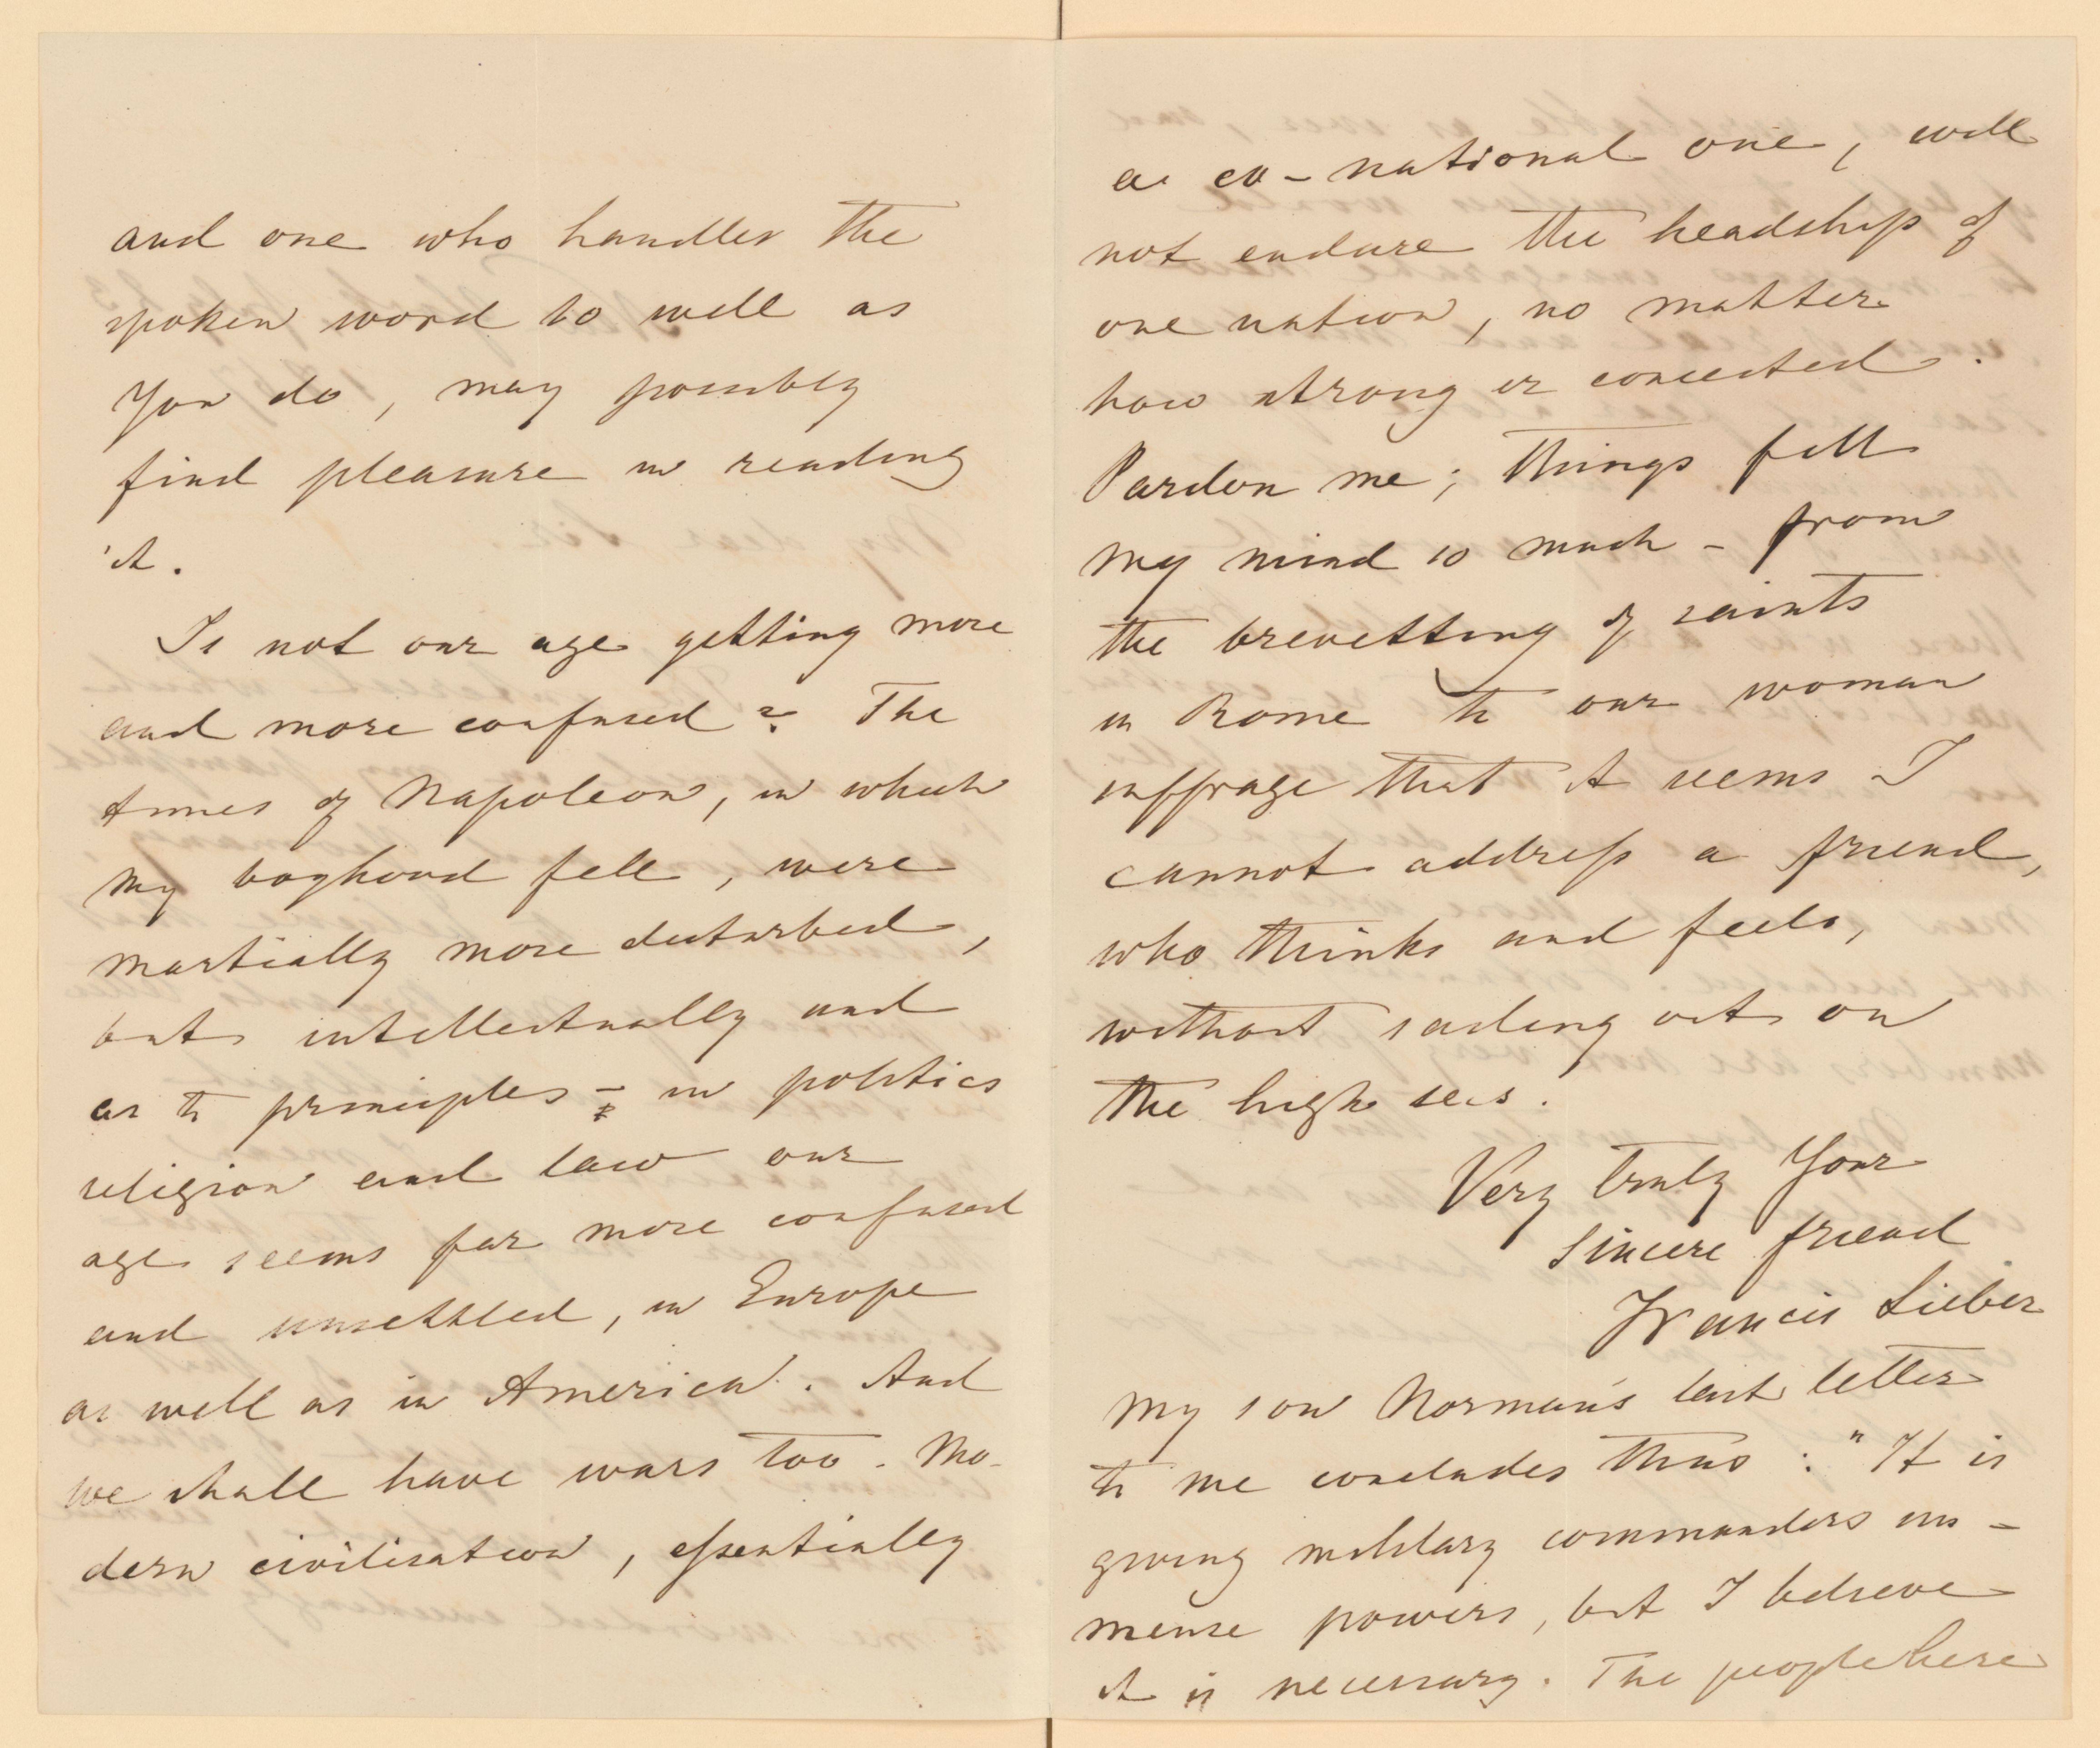 and one who handles the
spoken word so well as
You do, may possibly
find pleasure in reading
it.
Is not our age getting more
and more confused? The
times of Napoleon, in which
my boyhood fell, were
martially more disturbed,
but intellectually and
as to principles - in politics
religion and law our
age seems far more confused
and unsettled, in Europe
as well as in America. And
we shall have wars too. Mo-
dern civilisation, essentially
a co-national one, will
not endure the headship of
one nation, no matter
how strong or conceited.
Pardon me; things fill
my mind so much - from
the brevetting of saints
in Rome to our woman
suffrage that it seems I
cannot address a friend,
who thinks and feels,
without sailing out on
the high seas.
Very truly Your
sincere friend
Francis Lieber
My son Norman's last letter
to me concludes thus: "It is
giving military commanders im-
mense powers, but I believe
it is necessary. The people here